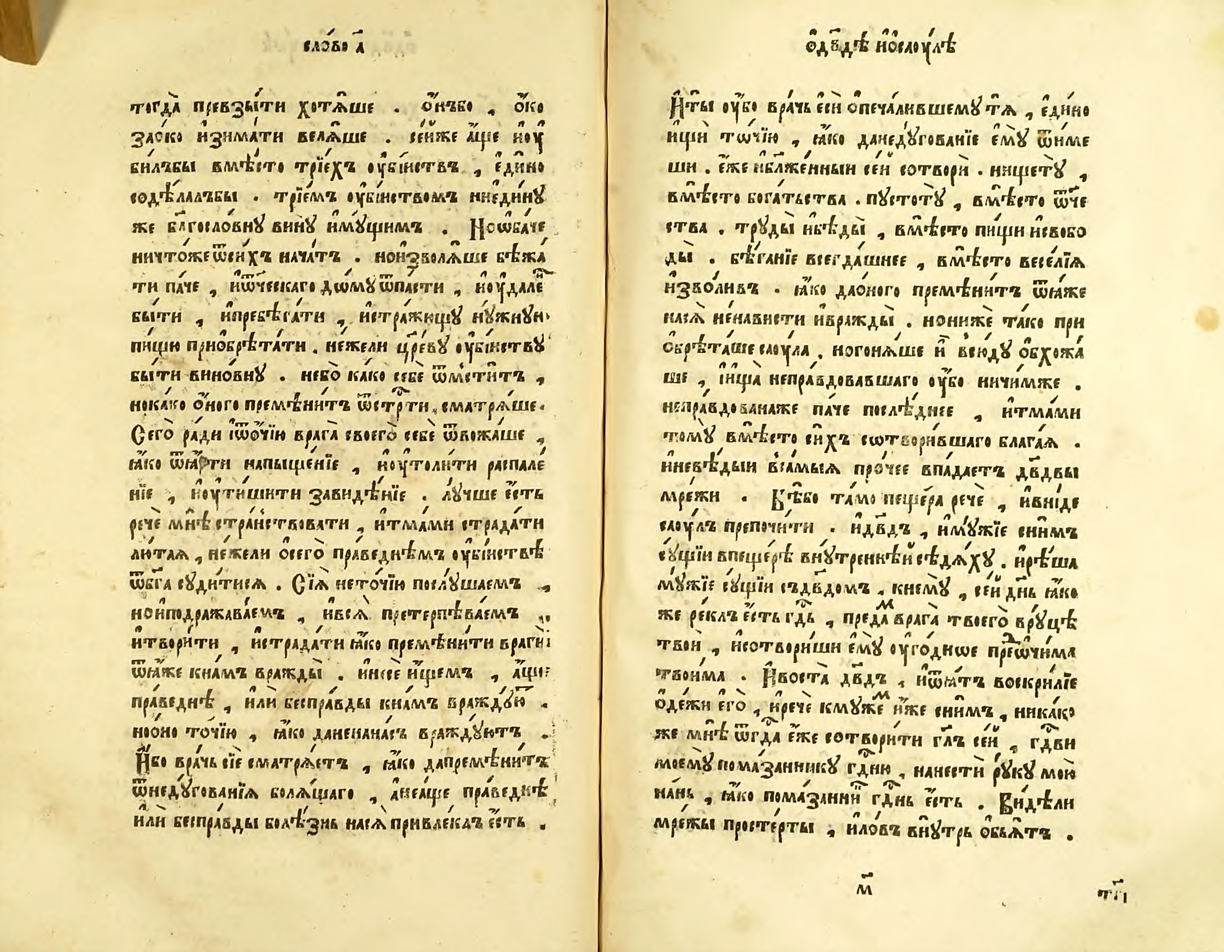 сло́во а҃
тогда̀ превзы́ти хотѧ́ше . ѻ҆нъбо , ѻ҆́ко
заѻ҆ко и҆зима́ти велѧ́ше . се́йже а҆́ще и҆оу҆
би́лъбы вмѣ́сто трїе́хъ оу҆бі́иствъ , є҆ди́но
содѣ́лалъбы . трїе́мъ оу҆бі́иствомъ ниеди́нꙋ
же бл҃госло́внꙋ винꙋ̀ и҆мꙋ́щимъ . Ноѻ҆ба́че
ничто́жеѿси́хъ нача́тъ . нои҆зволѧ́ше бѣжа́
ти па́че , и҆ѻ҆те́ческаго до́мꙋ ѿпа́сти , и҆оу҆дале́
бы́ти , и҆пребѣга́ти , и҆стра́жꙋщꙋ нꙋ́жнꙋю
пи́щꙋ приѻбрѣта́ти . не́жели цр҃е́вꙋ оу҆бі́иствꙋ
бы́ти вино́внꙋ . небо̀ ка́ко себѐ ѿмсти́тъ ,
нока́ко ѻ҆́ного премѣни́тъ ѿстр҇ти , сматрѧ́ше .
Сего̀ ра́ди и҆ѿо́чїю врага̀ своего̀ себѐ ѿвожа́ше ,
ꙗ҆́ко ѿѧ́ти напыще́нїе , и҆оу҆толи́ти распале́
нїе , и҆оу҆тиши́ти зави́дѣнїе . лꙋ́чше є҆́сть
речѐ мнѣ̀ стра́нствовати , и҆тма́ми страда́ти
лю́таѧ , не́жели ѻ҆се́го пра́веднѣмъ оу҆бі́иствѣ
ѿбг҃а сꙋди́тисѧ . Сїѧ̑ нето́чїю послꙋ́шаемъ ,
нои҆подража́ваемъ , и҆всѧ̑ претерпѣ́ваемъ
и҆твори́ти , и҆страда́ти ꙗ҆́ко премѣни́ти враги̑
ѿꙗ҆́же кна́мъ вражды̀ . и҆несѐ и҆́щемъ , а҆́ще
пра́веднѣ , и҆лѝ беспра́вды кна́мъ враждꙋ́ю .
ноѻ҆но̀ то́чїю , ꙗ҆́ко данена́насъ враждꙋ́ютъ .
И҆́бо вра́чь сїѐ сматрѧ́етъ , ꙗ҆́ко дапремѣни́тъ
ѿнедꙋ́гованїѧ болѧ́щаго , а҆неа҆́ще пра́веднѣ
и҆лѝ беспра́вды болѣ́знь насѧ̀ привле́клъ є҆́сть .
ѻ҆дв҃дѣ и҆ѻ҆саоу́лѣ
И҆ты̀ оу҆́бо вра́чь є҆сѝ ѻ҆печа́лившемꙋ тѧ̀ , є҆ди́но
и҆щѝ то́чїю , ꙗ҆́ко данедꙋ́гованїе є҆мꙋ̀ ѿи́ме
ши . є҆́же и҆бл҃же́нныи се́й сотворѝ . нищетꙋ̀ ,
вмѣ́сто бога́тьства . пꙋстотꙋ̀ , вмѣ́сто ѻ҆те́че
ства . трꙋды̀ и҆бѣ́ды , вмѣ́сто пи́щи и҆свобо
ды̀ . бѣ́ганїе всегда́шнее , вмѣ́сто весе́лїѧ
и҆зво́ливъ . ꙗ҆́ко даѻ҆ного премѣни́тъ ѿꙗ҆́же
насѧ̀ не́нависти и҆вражды̀ . нонижѐ та́ко при
ѻ҆брѣта́ше саоу́ла , ногонѧ́ше и҆̀ всю́дꙋ ѻ҆бхожа́
ше , и҆щѧ̀ непра́вдовавшаго оу҆́бо ничи́мже .
непра́вдованаже па́че послѣ́днее , и҆тма́ми
томꙋ̀ вмѣ́сто си́хъ сотвори́вшаго блага́ѧ .
и҆невѣ́дыи в̾са́мыѧ про́чее впа́даетъ дв҃двы
мре́жи . Бѣ́бо та́мо пеще́ра речѐ , и҆вни́де
саоу́лъ препочи́ти . и҆дв҃дъ , и҆мꙋ́жїе сни́мъ
сꙋ́щїи впеще́рѣ внꙋ́треннѣй сѣдѧ́хꙋ . и҆рѣ́ша
мꙋ́жїе сꙋ́щїи съдв҃домъ , кнемꙋ̀ , се́й дн҃ь ꙗ҆́ко
же ре́клъ є҆́сть гд҇ь , преда́мъ врага̀ твоего̀ врꙋ́цѣ
твоѝ , и҆сотвори́ши є҆мꙋ̀ оу҆го́дное пред̾ѻ҆чи́ма
твои́ма . И҆воста̀ дв҃дъ , и҆ѿѧ́тъ воскри́лїе
ѻ҆де́жи є҆го̀ , и҆речѐ кмꙋже́мъ и҆̀же сни́мъ , ника́ко
же мнѣ̀ ѿгд҇а є҆́же сотвори́ти гл҃ъ се́й , гд҇ви
моемꙋ̀ пома́занникꙋ гд҇ню , нанестѝ рꙋ́кꙋ мою̀
нань , ꙗ҆́ко пома́занни гд҇нь є҆́сть . Ви́дѣли
мре́жы просте́рты , и҆ло́въ внꙋ́трь ѻ҆бьѧ́тъ .
м҃